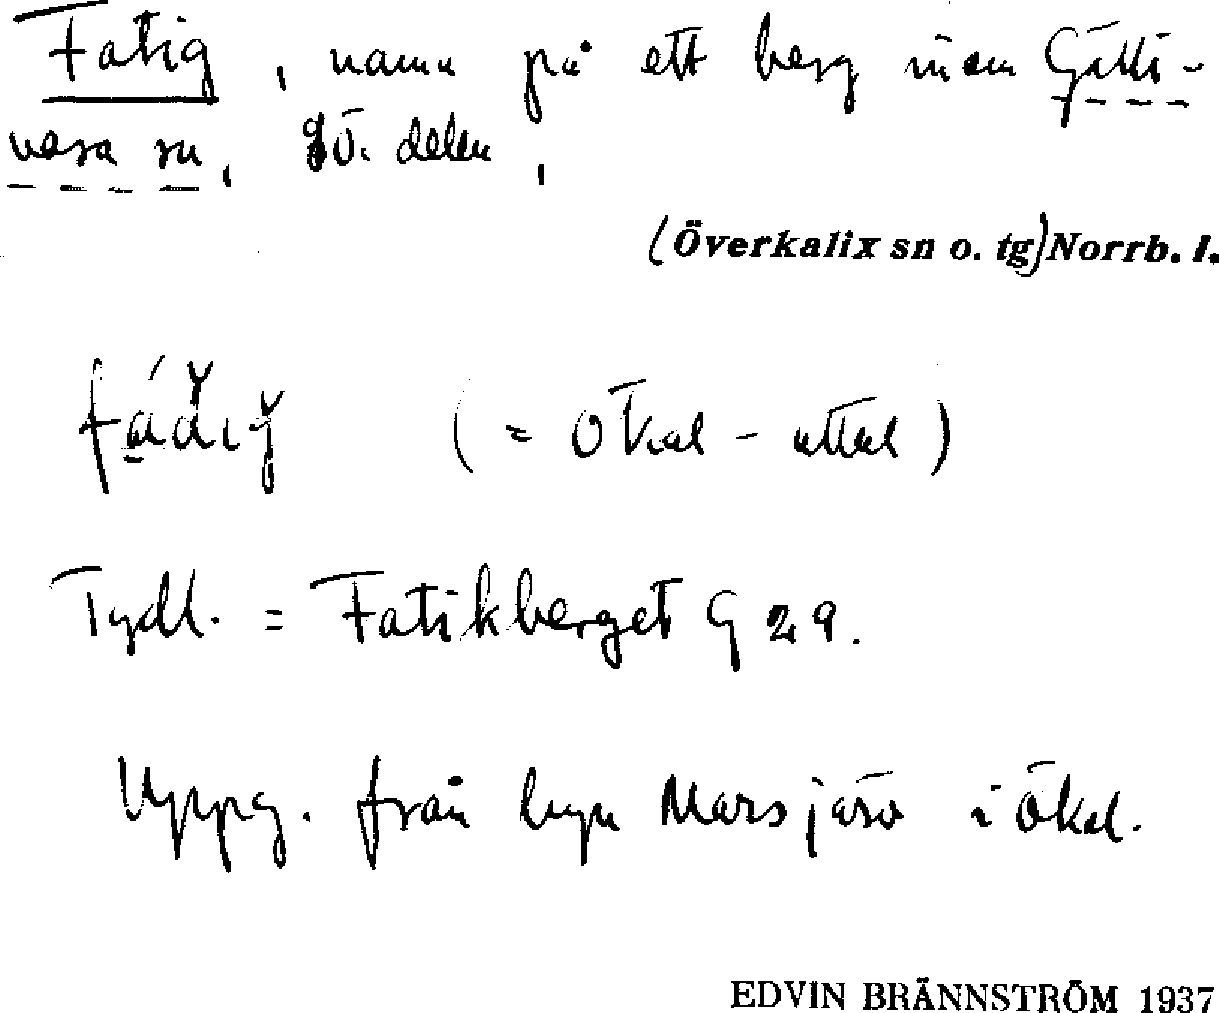 Fatig, namn på ett berg inom Gälli-
vara sn, sö. delen,
(Överkalix sn o. tg) Norrb. l.
( = Ökal - uttal )
Tydl. = Fatikberget G 29.
Uppg. från byn Marsjärv i Ökal.
EDVIN BRÄNNSTRÖM 1937